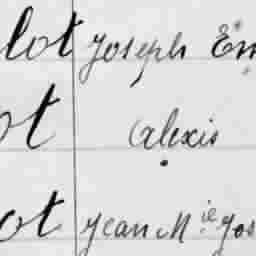 lot Joseph Em
ot Alexis
ot Jean M.ie Jos